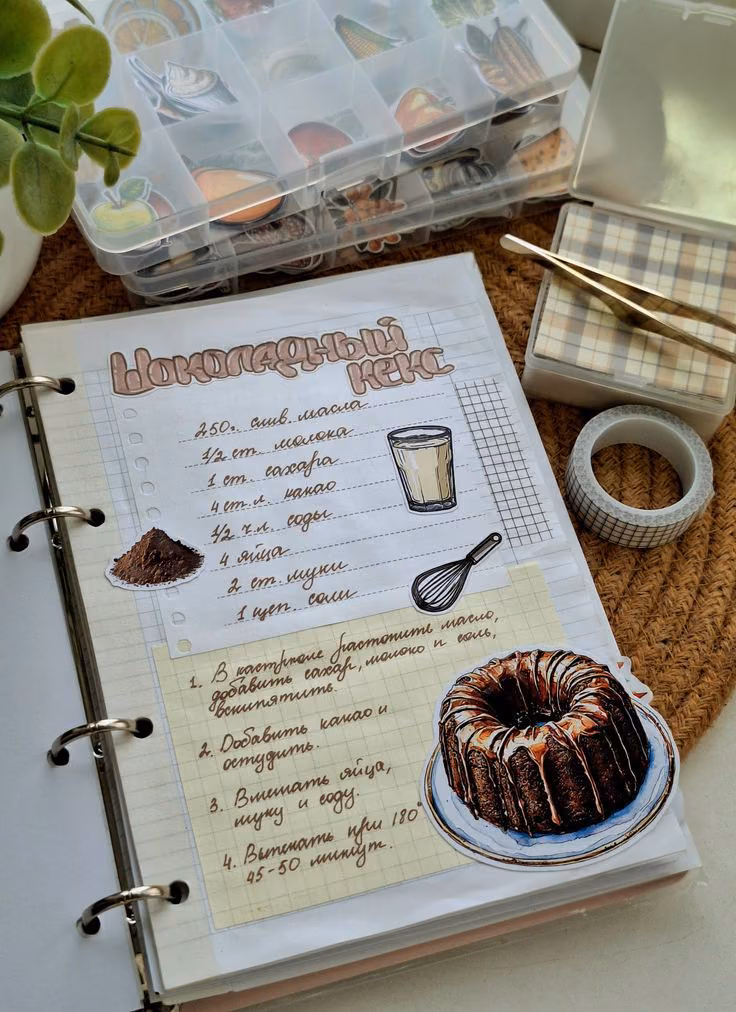 Шоколадный
кекс
250г. слив. масла
1/2 ст. молока
1 ст. сахара
4 ст. л. какао
1/2 ч. л. соды
4 яйца
2 ст. муки
1 щеп. соли
1. В кастрюле растопить масло,
добавить сахар, молоко и соль,
вскипятить.
2. Добавить какао и
остудить.
3. Вмешать яйца,
муку и соду.
4. Выпекать при 180°
45-50 минут.